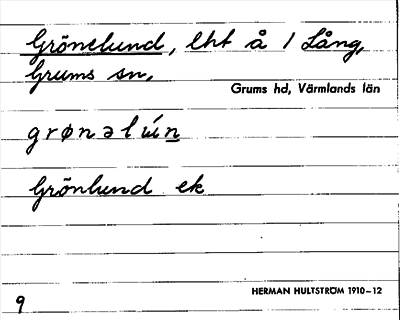 Grönelund, lht å 1 Lång,
Grums sn,
Grums hd, Värmlands län
grønəlún
Grönlund ek
HERMAN HULTSTRÖM 1910–12
9